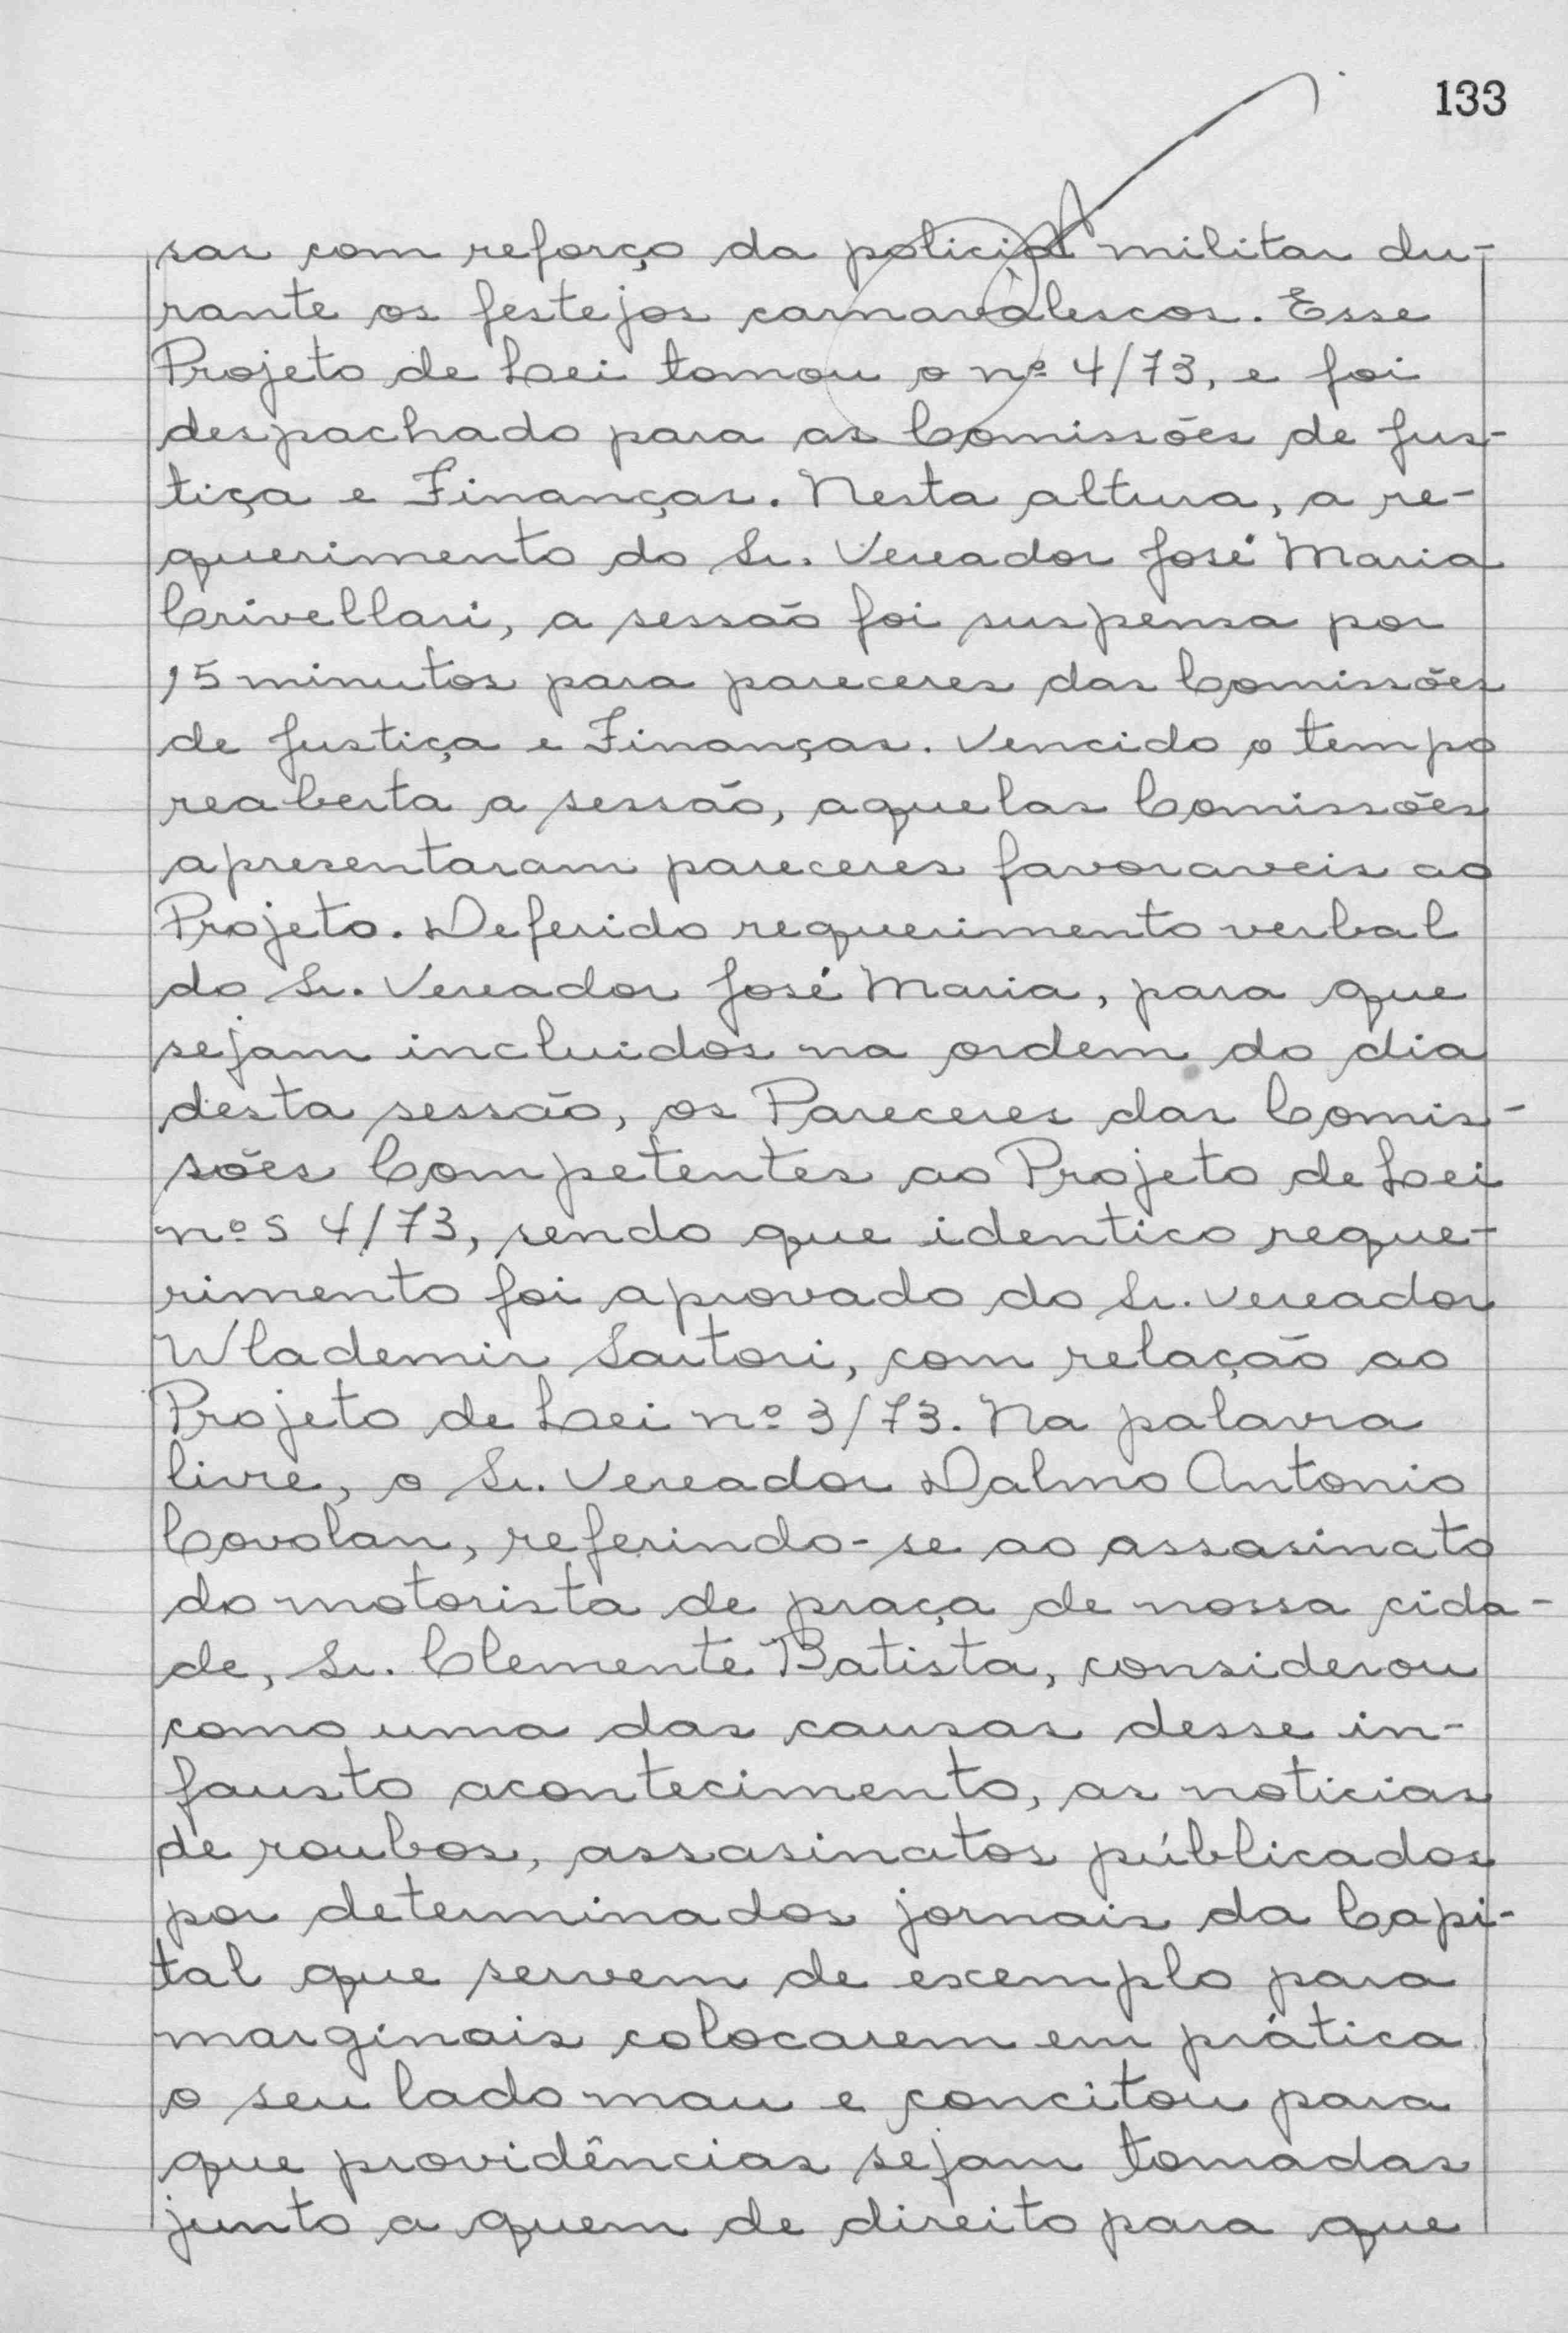 133
sas com reforço da policial militar du-
rante os festejos carnavalescos. Esse
Projeto de Lei tomou o nº 4/73, e foi
despachado para as Comissões de Jus-
tiça e Finanças. Nesta altura, a re-
querimento do Sr. Vereador José Maria
Crivellari, a sessão foi suspensa por
15 minutos para pareceres das Comissões
de Justiça e Finanças. Vencido o tempo
reaberta a sessão, aquelas Comissões
apresentaram pareceres favoraveis ao
Projeto. Deferido requerimento verbal
do Sr. Vereador José Maria, para que
sejam incluidos na ordem do dia
desta sessão, os Pareceres das Comis-
sões Competentes ao Projeto de Lei
nºs 4/73, sendo que identico reque-
rimento foi aprovado do Sr. Vereador
Wlademir Sartori, com relação ao
Projeto de Lei nº 3/73. Na palavra
livre, o Sr. Vereador Dalmo Antonio
Covolan, referindo-se ao assasinato
do motorista de praça de nossa cida-
de, Sr. Clemente Batista, considerou
como uma das causas desse in-
fausto acontecimento, as noticias
de roubos, assasinatos públicados
por determinados jornais da Capi-
tal que servem de exemplo para
marginais colocarem em prática
o seu lado mau e concitou para
que providências sejam tomadas
junto a quem de direito para que